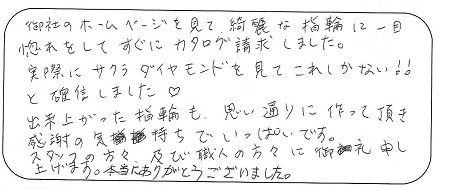 御社のホームページを見て、綺麗な指輪に一目
惚れをしてすぐにカタログ請求しました。
実際にサクラダイヤモンドを見てこれしかない!!
と確信しました♡
出来上がった指輪も、思い通りに作って頂き
感謝の気持ちでいっぱいです。
スタッフの方々、及び職人の方々に御礼申し
上げます。本当にありがとうございました。